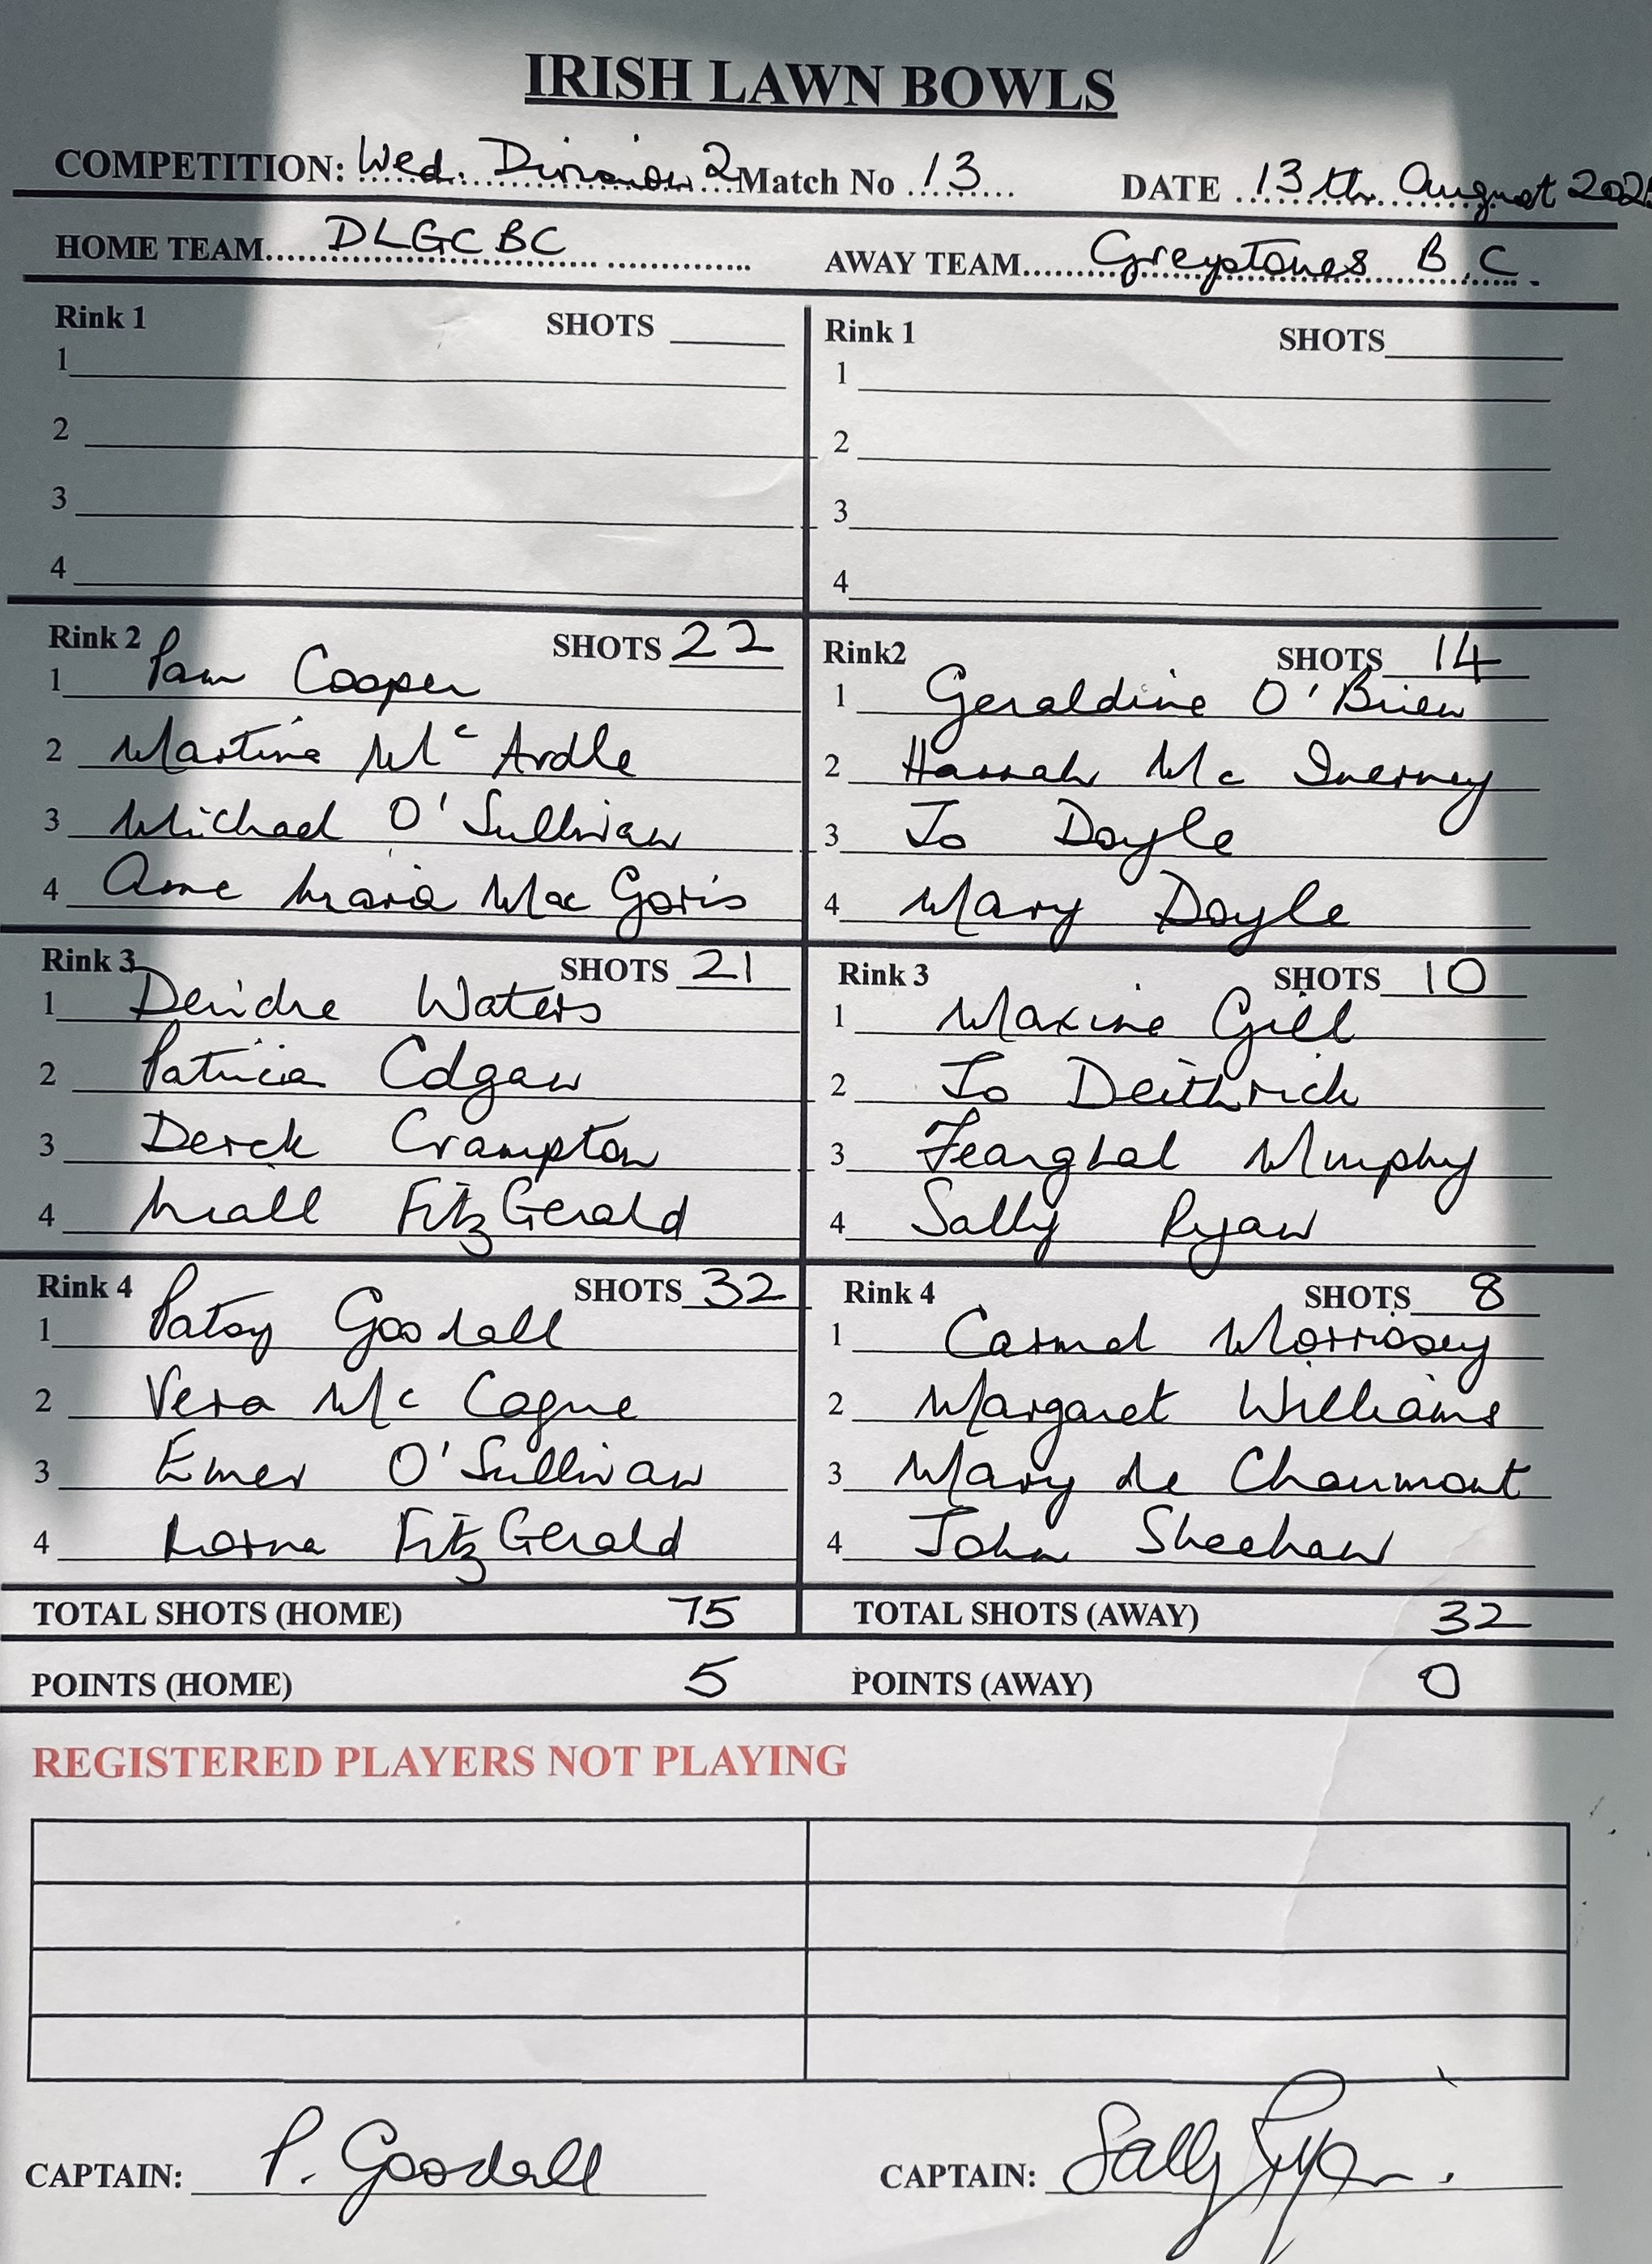 IRISH LAWN BOWLS
COMPETITION: Wed. Division 2 Match No 13 DATE 13th August 202
HOME TEAM DLGCBC AWAY TEAM Greystones B.C.
Rink 1 SHOTS Rink 1 SHOTS
1 1
2 2
3 3
4 4
Rink 2 SHOTS 22 Rink2 SHOTS 14
1 Pam Cooper 1 Geraldine O'Brien
2 Martina Mc Ardle 2 Hannah Mc Inerney
3 Michael O'Sullivan 3 Jo Doyle
4 Anne Maria Mac Goris 4 Mary Doyle
Rink 3 SHOTS 21 Rink 3 SHOTS 10
1 Deirdre Waters 1 Maxine Gill
2 Patricia Edgan 2 Jo Deithrich
3 Derek Crampton 3 Fearghal Murphy
4 Niall FitzGerald 4 Sally Ryan
Rink 4 SHOTS 32 Rink 4 SHOTS 8
1 Patsy Goodall 1 Carmel Morrissey
2 Vera Mc Cague 2 Margaret Williams
3 Emer O'Sullivan 3 Mary de Chaumont
4 Lorna FitzGerald 4 John Sheehan
TOTAL SHOTS (HOME) 75 TOTAL SHOTS (AWAY) 32
POINTS (HOME) 5 POINTS (AWAY) 0
REGISTERED PLAYERS NOT PLAYING
CAPTAIN: P. Goodall CAPTAIN: Sally Ryan.